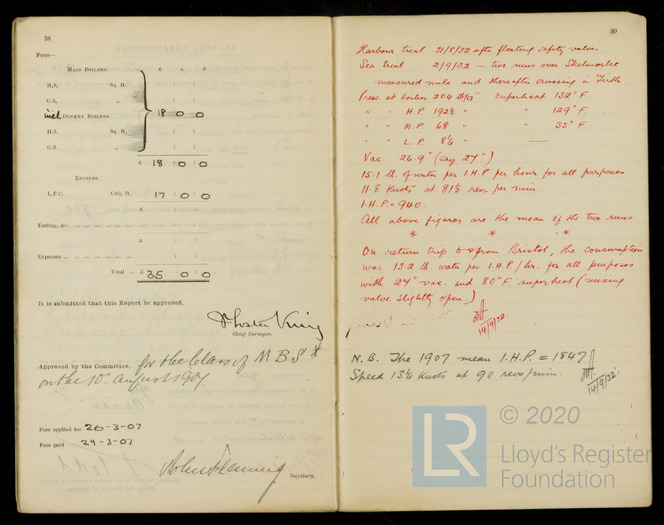 38
Fees—
MAIN BOILERS. £ s. d.
H.S. Sq. ft. : :
G.S. „ : :
incl DONKEY BOILERS. 18 : 0 : 0
H.S. Sq. ft. : :
G.S. „ : :
£ 18 : 0 : 0
ENGINES.
L.P.C. Cub. ft. 17 : 0 : 0
£ : :
Testing, &c. : :
£ : :
Expenses : :
Total £ 35 : 0 : 0
It is submitted that this Report be approved,
Chief Surveyor.
Approved by the Committee, for the Class of M.B.S*
on the 10th August 1907
Fees applied for 26-3-07
Fees paid 29-3-07
Secretary.
39
Harbour trial 31/8/32 after floating safety valve.
Sea trial 2/9/32 — two runs over Skelmorlie
measured mile and thereafter cruising in Firth.
Press. at boilers 204 lb/□" superheat 132°F
" " H.P. 192½ " " 129°F.
" " M.P. 68 " " 35°F
" " L.P. 8¼ " —
Vac. 26.9" (say 27")
15.1 lb. of water per I.H.P per hour for all purposes.
11.8 Knots at 81½ revs per min.
I.H.P. = 940.
All above figures are the mean of the two runs.
* * *
On return trip to & from Bristol, the consumption
was 13.2 lb water per I.H.P./hr. for all purposes
with 27" vac. and 80°F superheat (mixing
valve slightly open.)
14/9/32
N.B. The 1907 mean I.H.P. = 1847
Speed 13¼ Knots at 90 revs/min.
14/9/32.
LR
© 2020
Lloyd's Register
Foundation